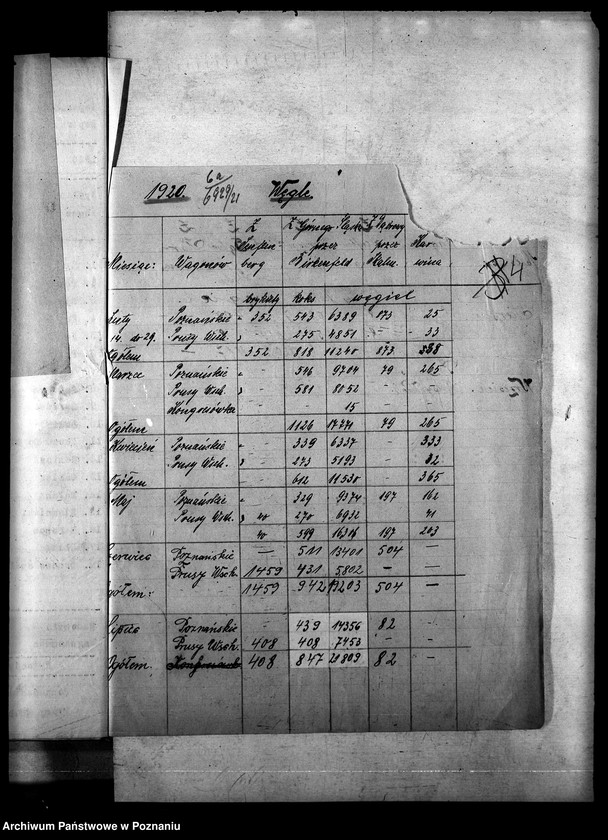 1920. 6a/6929/21 Węgle
Z Z Górnego Śląska Z Dąbrowy Kar
przez przez wina
Miesiąc: Wagonów berg Birkenfeld
brykiety koks węgiel
Luty Poznańskie " 352 543 6389 173 25
14. do 29. Prusy Wsch. " - 275 4851 - 33
Ogółem 352 818 11240 173
Marzec Poznańskie " - 546 9704 79 265
Prusy Wsch. " - 581 8052 - -
Kongresówka 15
Ogółem - 1126 17771 79 265
Kwiecień Poznańskie " - 339 6337 - 333
Prusy Wsch. " - 273 5193 - 32
Ogółem - 612 11530 - 365
Maj Poznańskie " - 329 9374 197 162
Prusy Wsch. " 20 270 6932 - 41
20 599 16306 197 203
Czerwiec Poznańskie — 511 13401 504 —
Prusy Wsch. 1459 431 5802 — —
Ogółem: 1459 942 19203 504 —
Lipiec Poznańskie - 439 14356 82 -
Prusy Wsch. 408 408 7453 - -
Ogółem. 408 847 21809 82 -
Archiwum Państwowe w Poznaniu